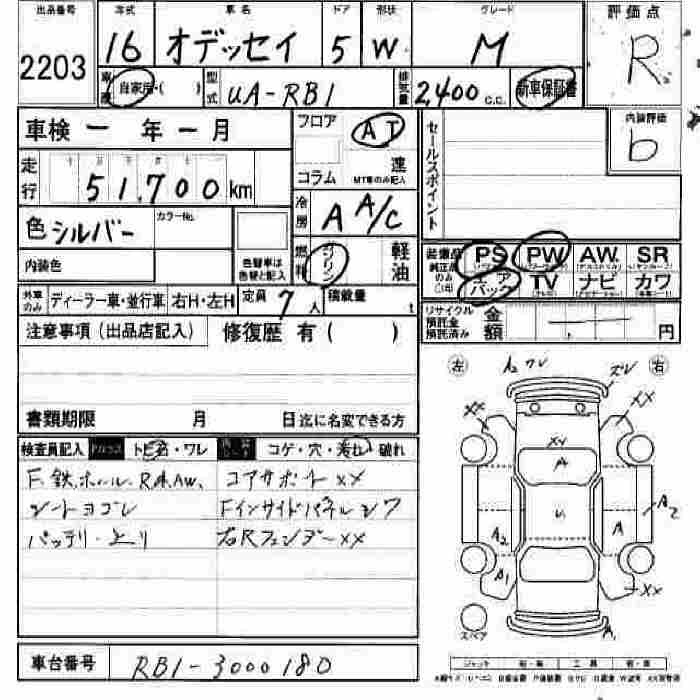 出品番号 年式 車名 ドア 形状 グレード 評価点
2203 16 オデッセイ 5 W M R
車歴 自家用・( ) 型式 UA-RB1 排気量 2,400 c.c. 新車保証書
車検 一 年 一 月 フロア AT セールスポイント 内装評価
b
走行 51,700 km コラム 速
MT車のみ記入
色 シルバー カラーNo. 冷房 A A/C
内装色 色替車は色替と記入 燃料 ガソリン 軽油
装備品 純正品のみ○印 PS PW AW. SR
エアバック TV ナビ カワ
外車のみ ディーラー車・並行車 右H・左H 定員 7 人 積載量 t
リサイクル預託金預託済み 金額 円
注意事項(出品店記入) 修復歴 有 ( )
左 A2 ワレ ズレ 右
書類期限 月 日迄に名変できる方
検査員記入 トビ石・ワレ コゲ・穴・汚れ・破れ
F.鉄.ホイール. R.A.AW. コアサポート XX
シートヨゴレ Fインサイドパネル シワ
バッテリ・上リ 右Rフェンダー XX
XX XX
XX
A
U
A2 A A2
A1 XX
スペア A1
車台番号 RB1-3000180
ジャッキ 有・無 工具 有・無